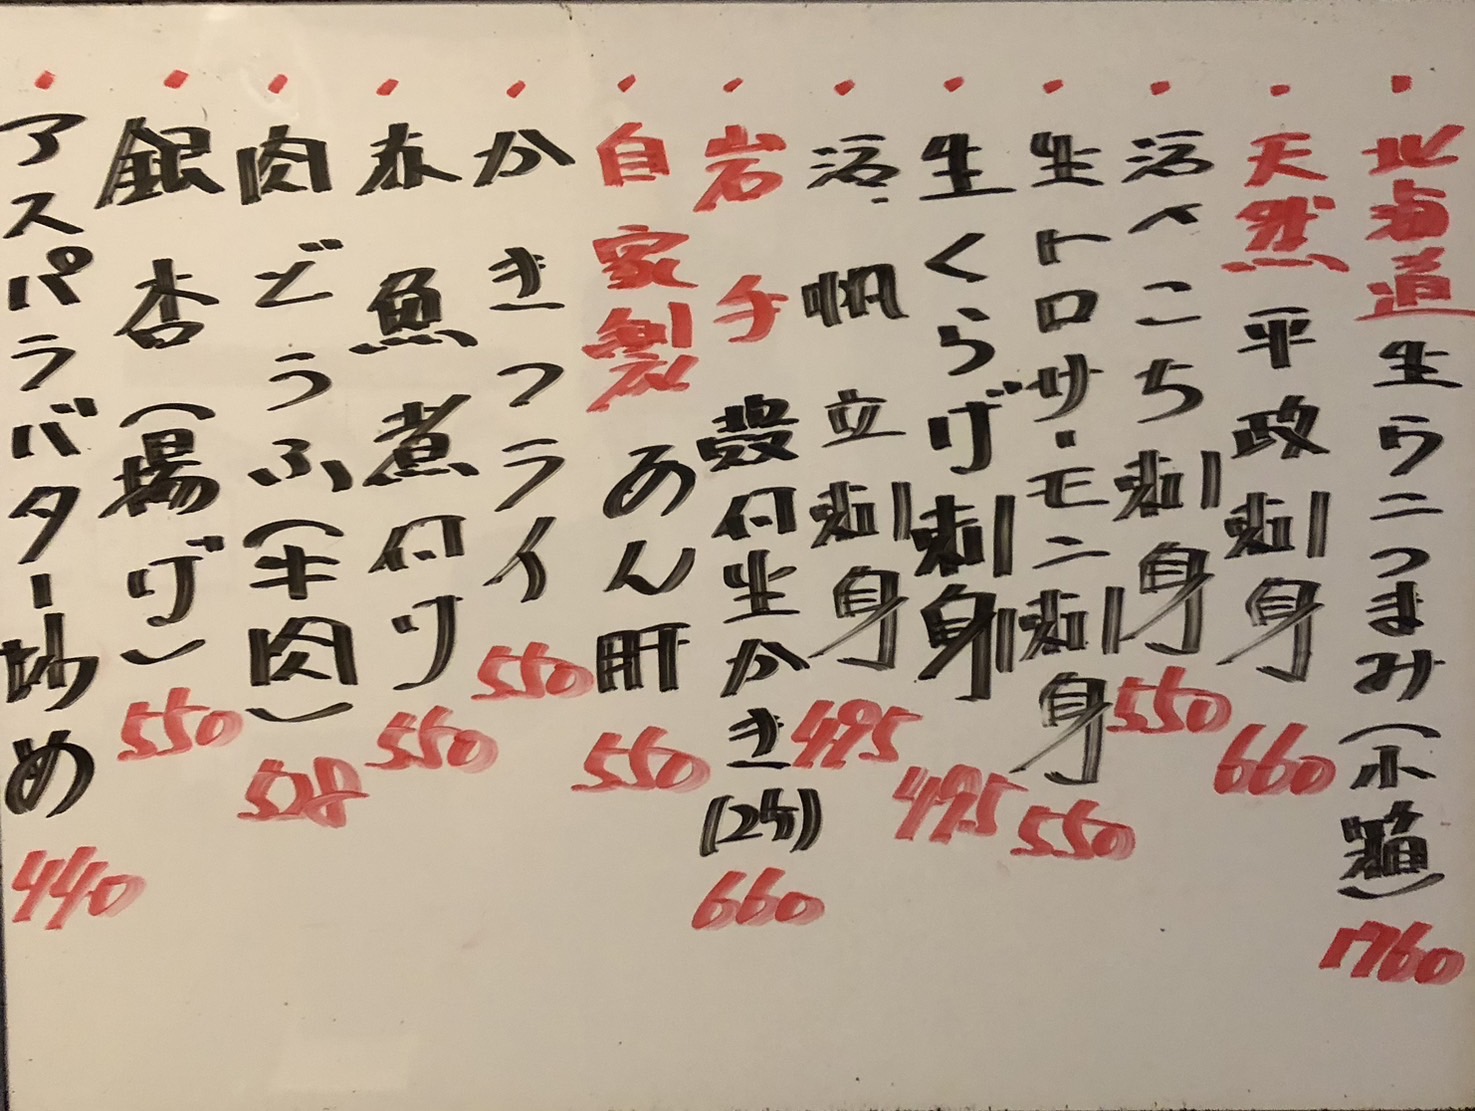 ・北海道生ウニつまみ(小箱)1760
・天然平政刺身660
・活〆こち刺身550
・生トロサーモン刺身550
・生くらげ刺身495
・活帆立刺身495
・岩手殻付生かき(2ケ)660
・自家製あん肝550
・かきフライ550
・赤魚煮付け550
・肉どうふ(牛肉)528
・銀杏(揚げ)550
・アスパラバター炒め440